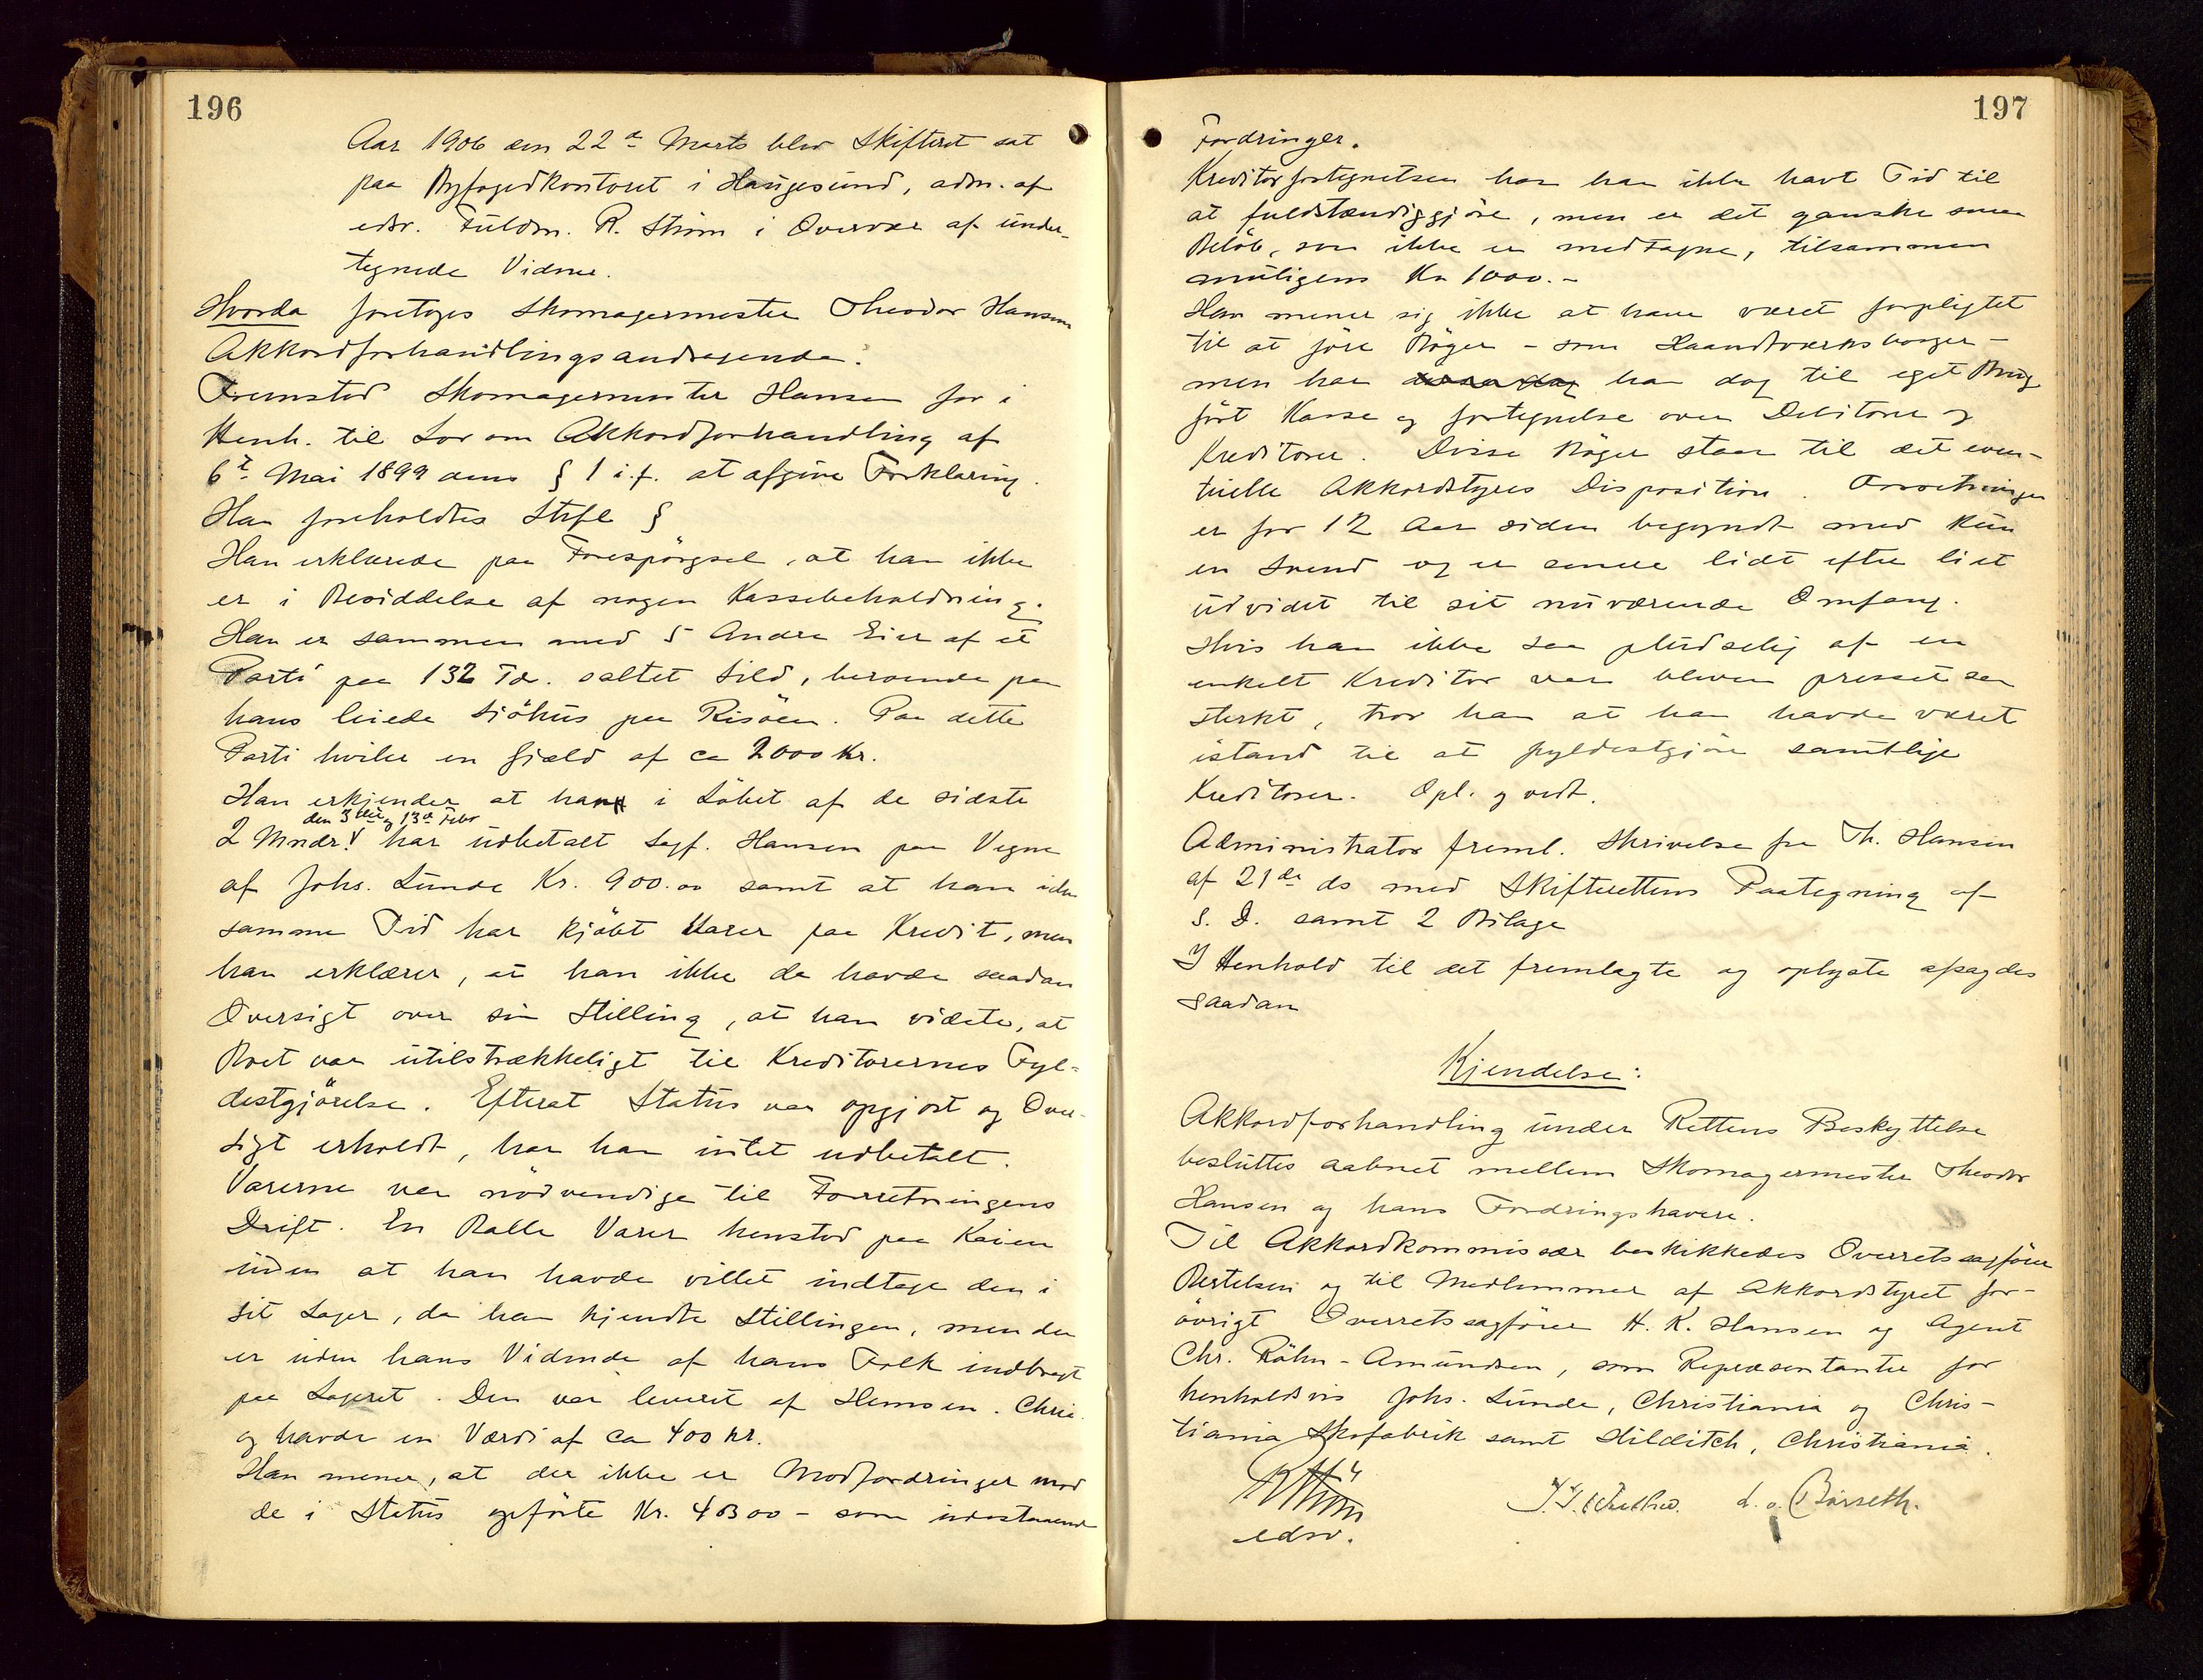 196
Aar 1906 den 22de Marts blev Skifteret sat
paa Byfogedkontoret i Haugesund, adm. af
edsv. Fuldm. R. Strøm i Overvær af under-
tegnede Vidner.
Hvorda foretoges Skomagermester Theodor Hansens
Akkordforhandlingsandragende.
Fremstod Skomagermester Hansen for i
Henh. til Lov om Akkordforhandling af
6te Mai 1899 dens § 1 i.f. at afgive Forklaring.
Han foreholdtes Strfl §
Han erklærede paa Forespörgsel, at han ikke
er i Besiddelse af nogen Kassebeholdning.
Han er sammen med 5 Andre Eier af et
Parti paa 132 Tdr. saltet Sild, beroende paa
hans leiede Sjöhus paa Risöen. Paa dette
Parti hviler en Gjæld af ca 2000 Kr.
Han erkjender at han i Löbet af de sidste
den 3die og 13de Febr
2 Mndr. har udbetalt Sagf. Hansen paa Vegne
af Johs. Lunde Kr. 900.00 samt at han i den
samme Tid har kjöbt Varer paa Kredit, men
han erklærer, at han ikke da havde saadan
Oversigt over sin Stilling, at han vidste, at
Boet var utilstrækkeligt til Kreditorernes Fyl-
destgjörelse. Efterat Status var opgjort og Over-
sigt erholdt, har han intet udbetalt.
Varerne var nödvendige til Forretningens
Drift. En Balle Varer henstod paa Kaien
uden at han havde villet indtage den i
sit Lager, da han kjendte Stillingen, men den
er uden hans Vidende af hans Folk indbragt
paa Lageret. Den var leveret af Hemsen. Chria.
og havde en Værdi af ca 400 kr.
Han mener, at der ikke er Modfordringer mod
de i Status opförte Kr. 4800 - som udestaaende
197
Fordringer.
Kreditorfortegnelsen har han ikke havt Tid til
at fuldstændiggjöre, men er det ganske smaa
Belöb, som ikke er medtagne, tilsammen
muligens Kr 1000.-
Han mener sig ikke at have været forpligtet
til at före Böger - som Haandværksborger -
men har han dog til eget Brug
fört Kasse og fortegnelse over Debitorer og
Kreditorer. Disse Böger staar til det even-
tuelle Akkordstyres Disposition. Forretningen
er for 12 Aar siden begyndt med kun
en Svend og er senere lidt efter lidt
udvidet til sit nuværende Omfang.
Hvis han ikke saa pludselig af en
enkelt Kreditor var bleven presset saa
sterkt, tror han at han havde været
istand til at fyldestgjöre samtlige
Kreditorer. Opl. og vedt.
Administrator freml. Skrivelse fra Th. Hansen
af 21de ds med Skifterettens Paategning af
s. D. samt 2 Bilage
I Henhold til det fremlagte og oplyste afsagdes
saadan
Kjendelse:
Akkordforhandling under Rettens Beskyttelse
besluttes aabnet mellem Skomagermester Theodor
Hansen og hans Fordringshavere.
Til Akkordkommissær beskikkedes Overretssagförer
Bertelsen og til Medlemmer af Akkordstyret for-
övrigt Overretssagförer H. K. Hansen og Agent
Chr. Röhn-Amundsen, som Repræsentanter for
henholdsvis Johs. Lunde, Christiania og Chris-
tiania Skofabrik samt Hilditch, Christiania.
R Strøm
edsv.
L. o. Børseth.